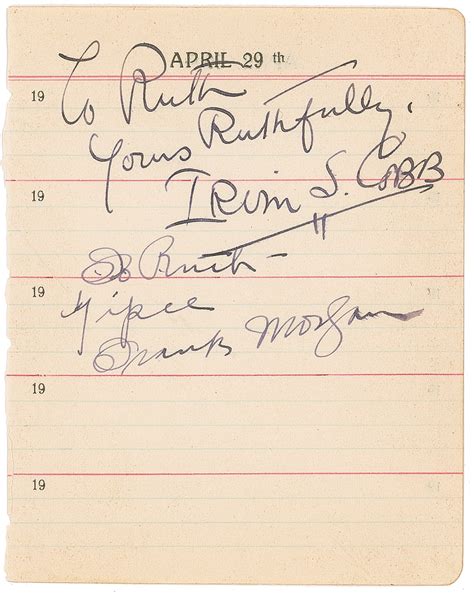 APRIL 29th
19
To Ruth
Yours Ruthfully,
19
Irvin S. Cobb
To Ruth -
19
Frank Morgan
19
19